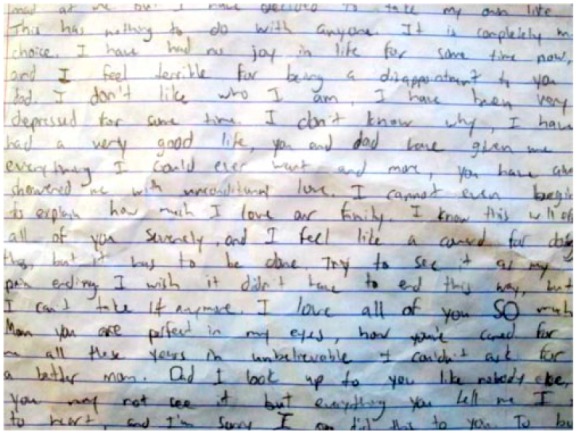 mad at me but I have decided to take my own life
This has nothing to do with anyone. It is completely m
choice. I have had no joy in life for some time now,
and I feel terrible for being a disappointment to you
dad. I don't like who I am, I have been very
depressed for some time. I don't know why, I have
had a very good life, you and dad have given me
everything I could ever want and more, you have
showered me with unconditional love. I cannot even begin
to explain how much I love our family. I know this will
all of you severely, and I feel like a coward for doing
this but it has to be done. Try to see it as my
pain ending. I wish it didn't have to end this way, but
I can't take it anymore. I love all of you SO much
Mom you are perfect in my eyes, how you've cared for
me all these years is unbelievable I couldn't ask for
a better mom. Dad I look up to you like nobody else,
you may not see it but everything you tell me I
to heart, and I'm sorry I did this to you. To